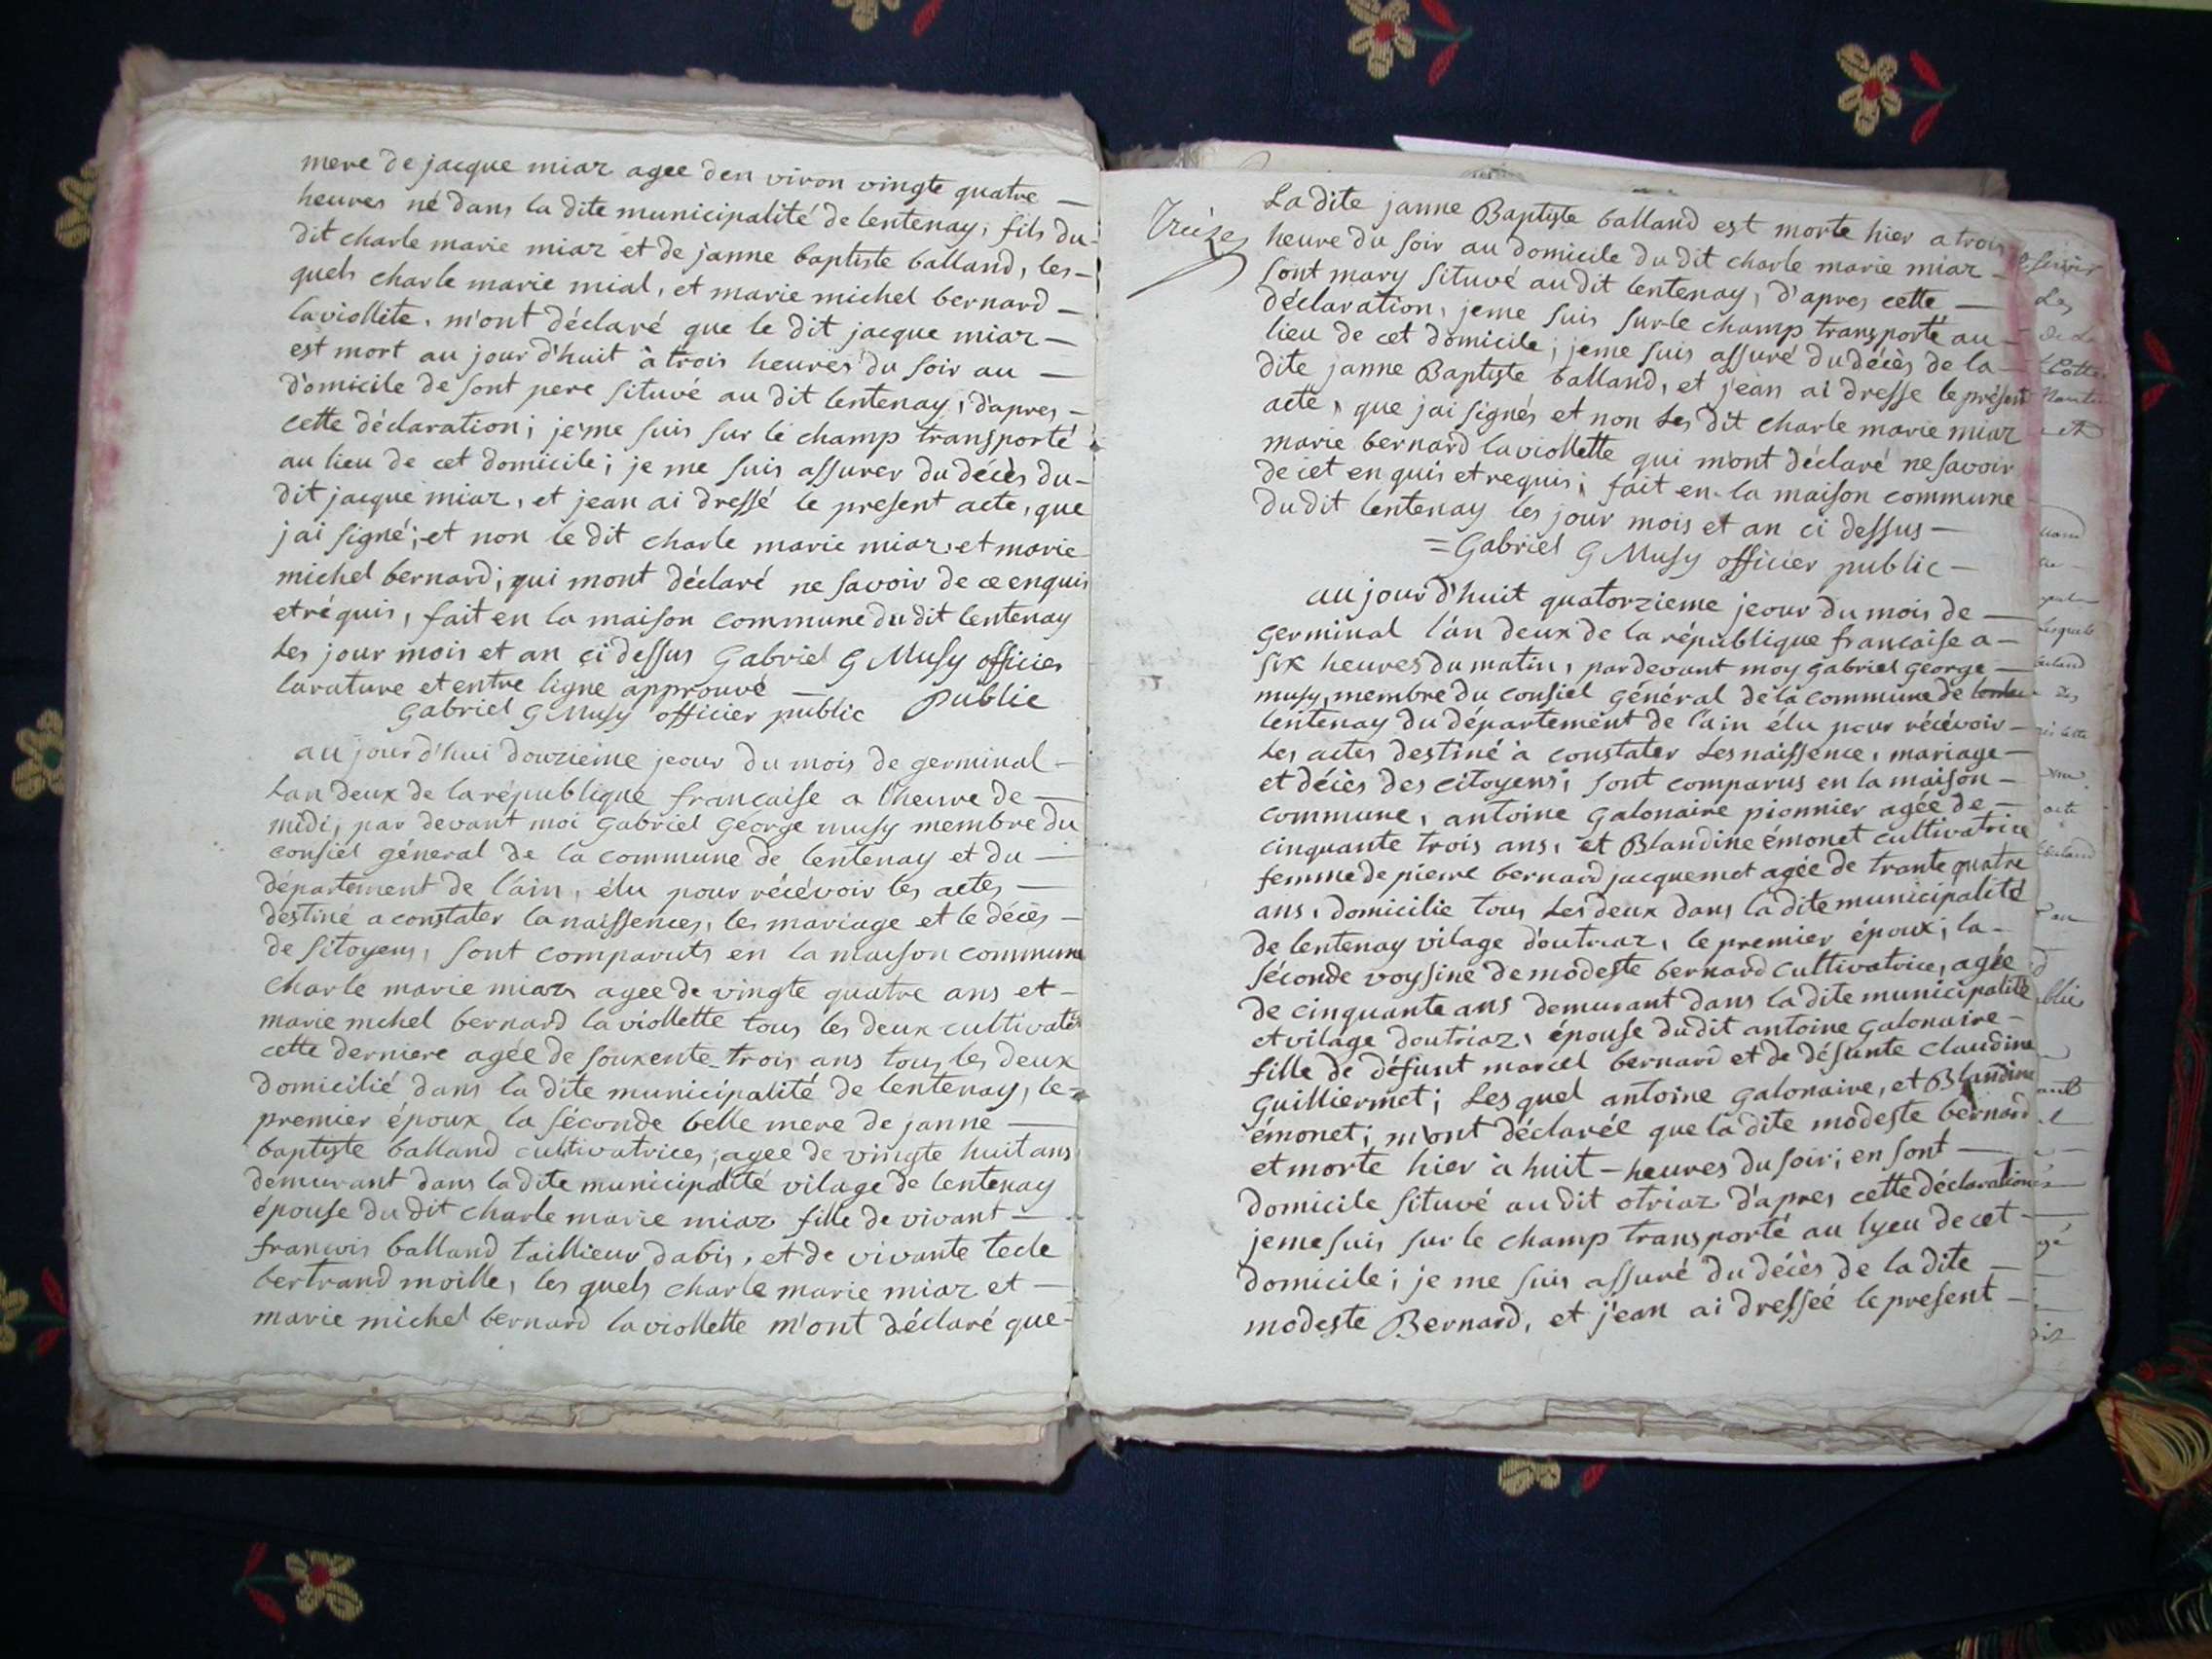 mere de jacque miaz agee den viron vingte quatre —
heures né dans la dite municipalité de lentenay, fils du-
dit charle marie miaz et de janne baptiste balland, les-
quels charle marie mial, et marie michel bernard —
laviollite. m'ont déclaré que le dit jacque miaz —
est mort au jour d'huit à trois heures du soir au —
domicile de sont pere situvé au dit lentenay, d'apres —
cette déclaration; jeme suis sur le champ transporté
au lieu de cet domicile; je me suis assurer du decès du-
dit jacque miaz, et jean ai dressé le present acte, que
jai signé; et non le dit charle marie miaz et marie
michel bernard; qui mont déclaré ne savoir de ce enquis
et réquis, fait en la maison commune du dit lentenay
les jour mois et an çi dessus Gabriel G Musy officier
larature et entre ligne approuvé — public
Gabriel G Musy officier public
au jourd'hui douzieme jeour du mois de germinal —
Lan deux de la république francaise a lheure de —
midi, par devant moi Gabriel George musy membre du
consiel géneral de la commune de lentenay et du —
département de l'ain, élu pour récévoir les actes —
destiné a constater la naissences, les mariage et le décès —
de sitoyens, sont comparuts en la maison commune
charle marie miaz agee de vingte quatre ans et —
marie mchel bernard la viollette tous les deux cultivate
cette derniere agée de souxente trois ans tous les deux
domicilié dans la dite municipalité de lentenay, le-
premier époux la séconde belle mere de janne —
baptiste balland cultivatrices, agee de vingte huit ans
demurant dans la dite municipalité vilage de lentenay
épouse du dit charle marie miaz fille de vivant —
francois balland taillieur dabis, et de vivante tecle
bertrand moille, les quels charle marie miaz et —
marie michel bernard laviollette m'ont déclaré que-
Treize
La dite janne Baptiste balland est morte hier a trois
heure du soir au domicile du dit charle marie miaz —
sont mary situvé au dit lentenay, d'apres cette —
déclaration, jeme suis sur-le champ transporté au —
lieu de cet domicile; jeme suis assuré du décès de la —
dite janne Baptiste balland, et j'ean ai dresse le présent
acte, que jai signés et non les dit charle marie miaz
marie bernard laviollette qui m'ont déclaré ne savoir
de cet en quis et requis; fait en la maison commune
du dit lentenay les jour mois et an ci dessus —
= Gabriel G Musy officier public —
au jour d'huit quatorzieme jeour du mois de —
germinal l'an deux de la république francaise a —
six heures du matin, pardevant moy Gabriel George —
musy, membre du consiel général de la commune de
lentenay du département de l'ain élu pour récévoir —
les actes destiné à constater les naissence, mariage —
et décès des citoyens; sont comparus en la maison —
commune, antoine Galonaire pionnier agée de —
cinquante trois ans, et Blandine émonet cultivatrice
femme de pierre bernard jacquemet agée de trante quatre
ans, domicilie tous les deux dans la dite municipalité
de lentenay vilage d'outriaz, le premier époux, la-
séconde voysine de modeste bernard cultivatrice, agée
de cinquante ans demurant dans la dite municipalité
et vilage doutriaz, épouse dudit antoine Galonaire —
fille de défunt marcel bernard et de défunte claudine
Guilliermet; Lesquel antoine Galonaire, et Blandine
émonet; m'ont déclarée que la dite modeste bernard
et morte hier à huit — heures du soir; en sont —
domicile situvé au dit otriaz d'apres cette déclaration
jeme suis sur le champ transporté au lyeu de cet —
domicile; je me suis assuré du décès de la dite —
modeste Bernard, et j'ean ai dresseé le present —